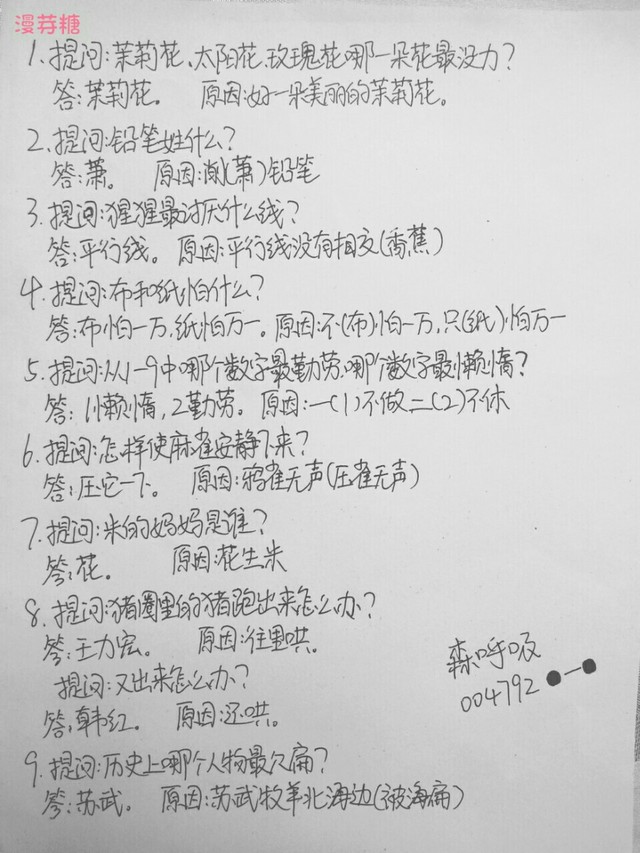 漫芽糖
1.提问:茉莉花、太阳花、玫瑰花哪一朵花最没力?
答:茉莉花。 原因:好一朵美丽的茉莉花。
2.提问:铅笔姓什么?
答:萧。 原因:削(萧)铅笔
3.提问:猩猩最讨厌什么线?
答:平行线。 原因:平行线没有相交(香蕉)
4.提问:布和纸怕什么?
答:布怕一万,纸怕万一。原因:不(布)怕一万,只(纸)怕万一
5.提问:从1-9中哪个数字最勤劳,哪个数字最懒惰?
答:1懒惰,2勤劳。 原因:一(1)不做二(2)不休
6.提问:怎样使麻雀安静下来?
答:压它一下。 原因:鸦雀无声(压雀无声)
7.提问:米的妈妈是谁?
答:花。 原因:花生米
8.提问:猪圈里的猪跑出来怎么办?
答:王力宏。 原因:往里哄。
提问:又出来怎么办?
答:韩红。 原因:还哄。
9.提问:历史上哪个人物最欠扁?
答:苏武。 原因:苏武牧羊北海边(被海扁)
森呼吸
004792